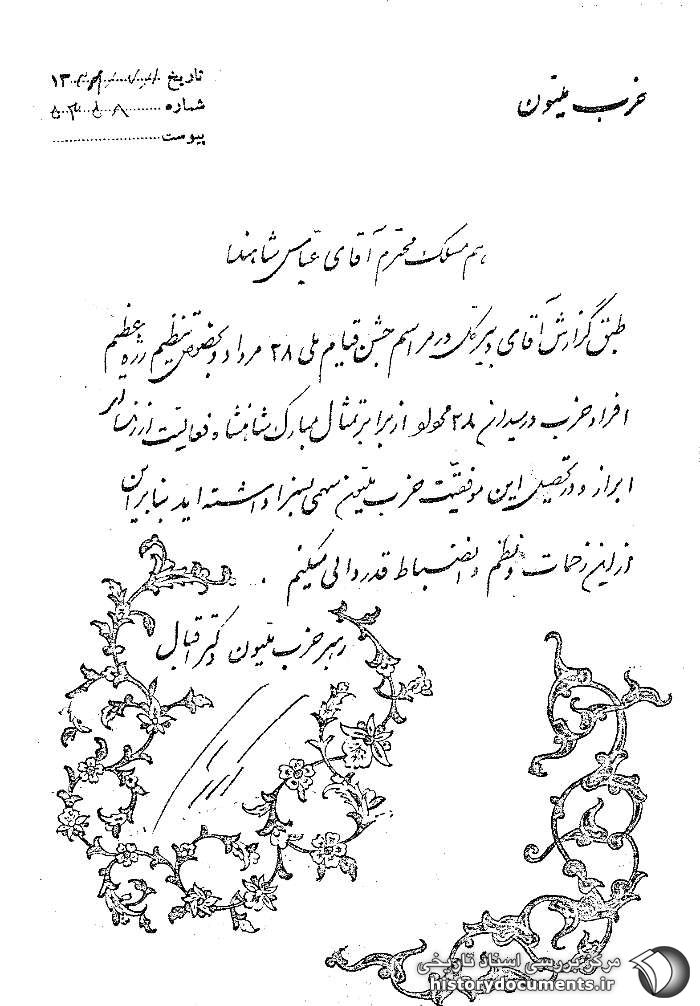 حزب ملیون
تاریخ
شماره
پیوست
هم مسلک محترم آقای عباس شاهنده
طبق گزارش آقای دبیرکل در مراسم جشن قیام ملی ۲۸ مرداد و بخصوص تنظیم رژه عظیم
افراد حزب در میدان ۲۸ محولو از برابر تمثال مبارک شاهنشاه فعالیت ارزنده‌ای
ابراز و در تحصیل این موفقیت حزب ملیون سهمی بسزا داشته اید بنابراین
از این زحمات و نظم و انضباط قدردانی میکنیم
رهبر حزب ملیون دکتر اقبال
مرکز بررسی اسناد تاریخی
historydocuments.ir